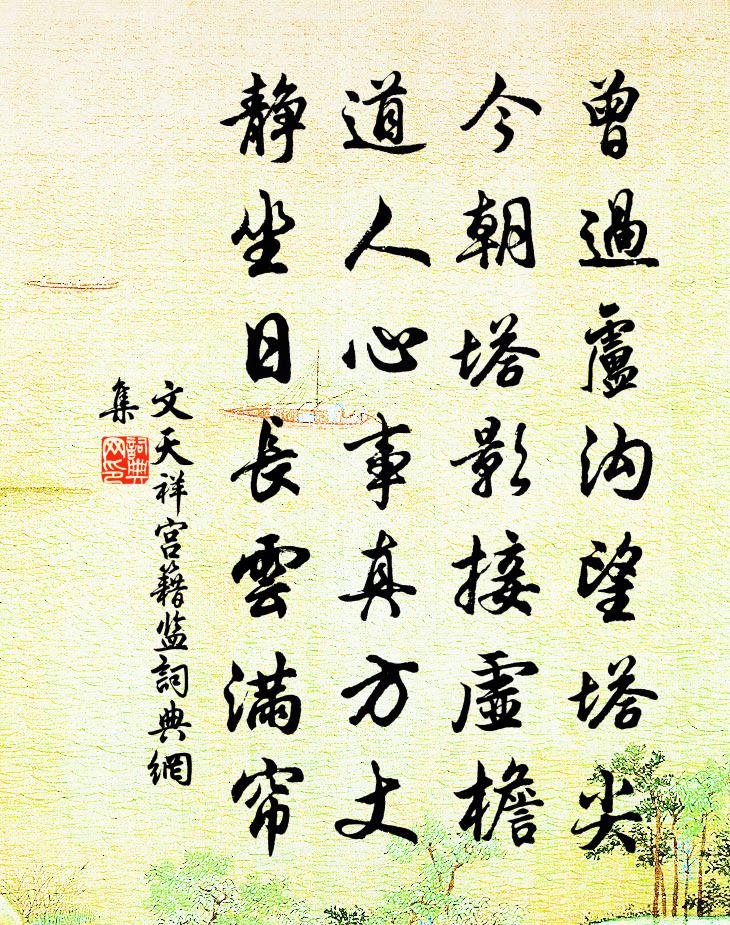 曾過盧沟望塔尖
今朝塔影接虛檐
道人心事真方丈
静坐日長雲满帘
文天祥宫籍监詞典網
集
詞典网印